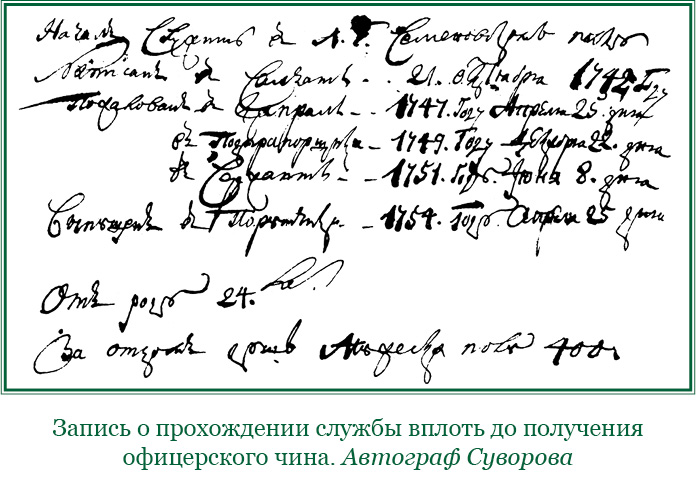 Началъ Служить въ Л. Г. Семеновскомъ полку
Написанъ въ Салдаты - - 21. Октября 1742 Году
Пожалованъ въ Капралы - - 1747. Году Апреля 25. дня
въ Подпрапорщики - 1749. Году 22. дня
въ Сержанты - - 1751. Году. Июня 8. дня
въ Порутчики. - 1754. Году. Апреля 25 дня
Отъ роду 24.
За отцомъ душъ мужеска полу 400.
Запись о прохождении службы вплоть до получения
офицерского чина. Автограф Суворова